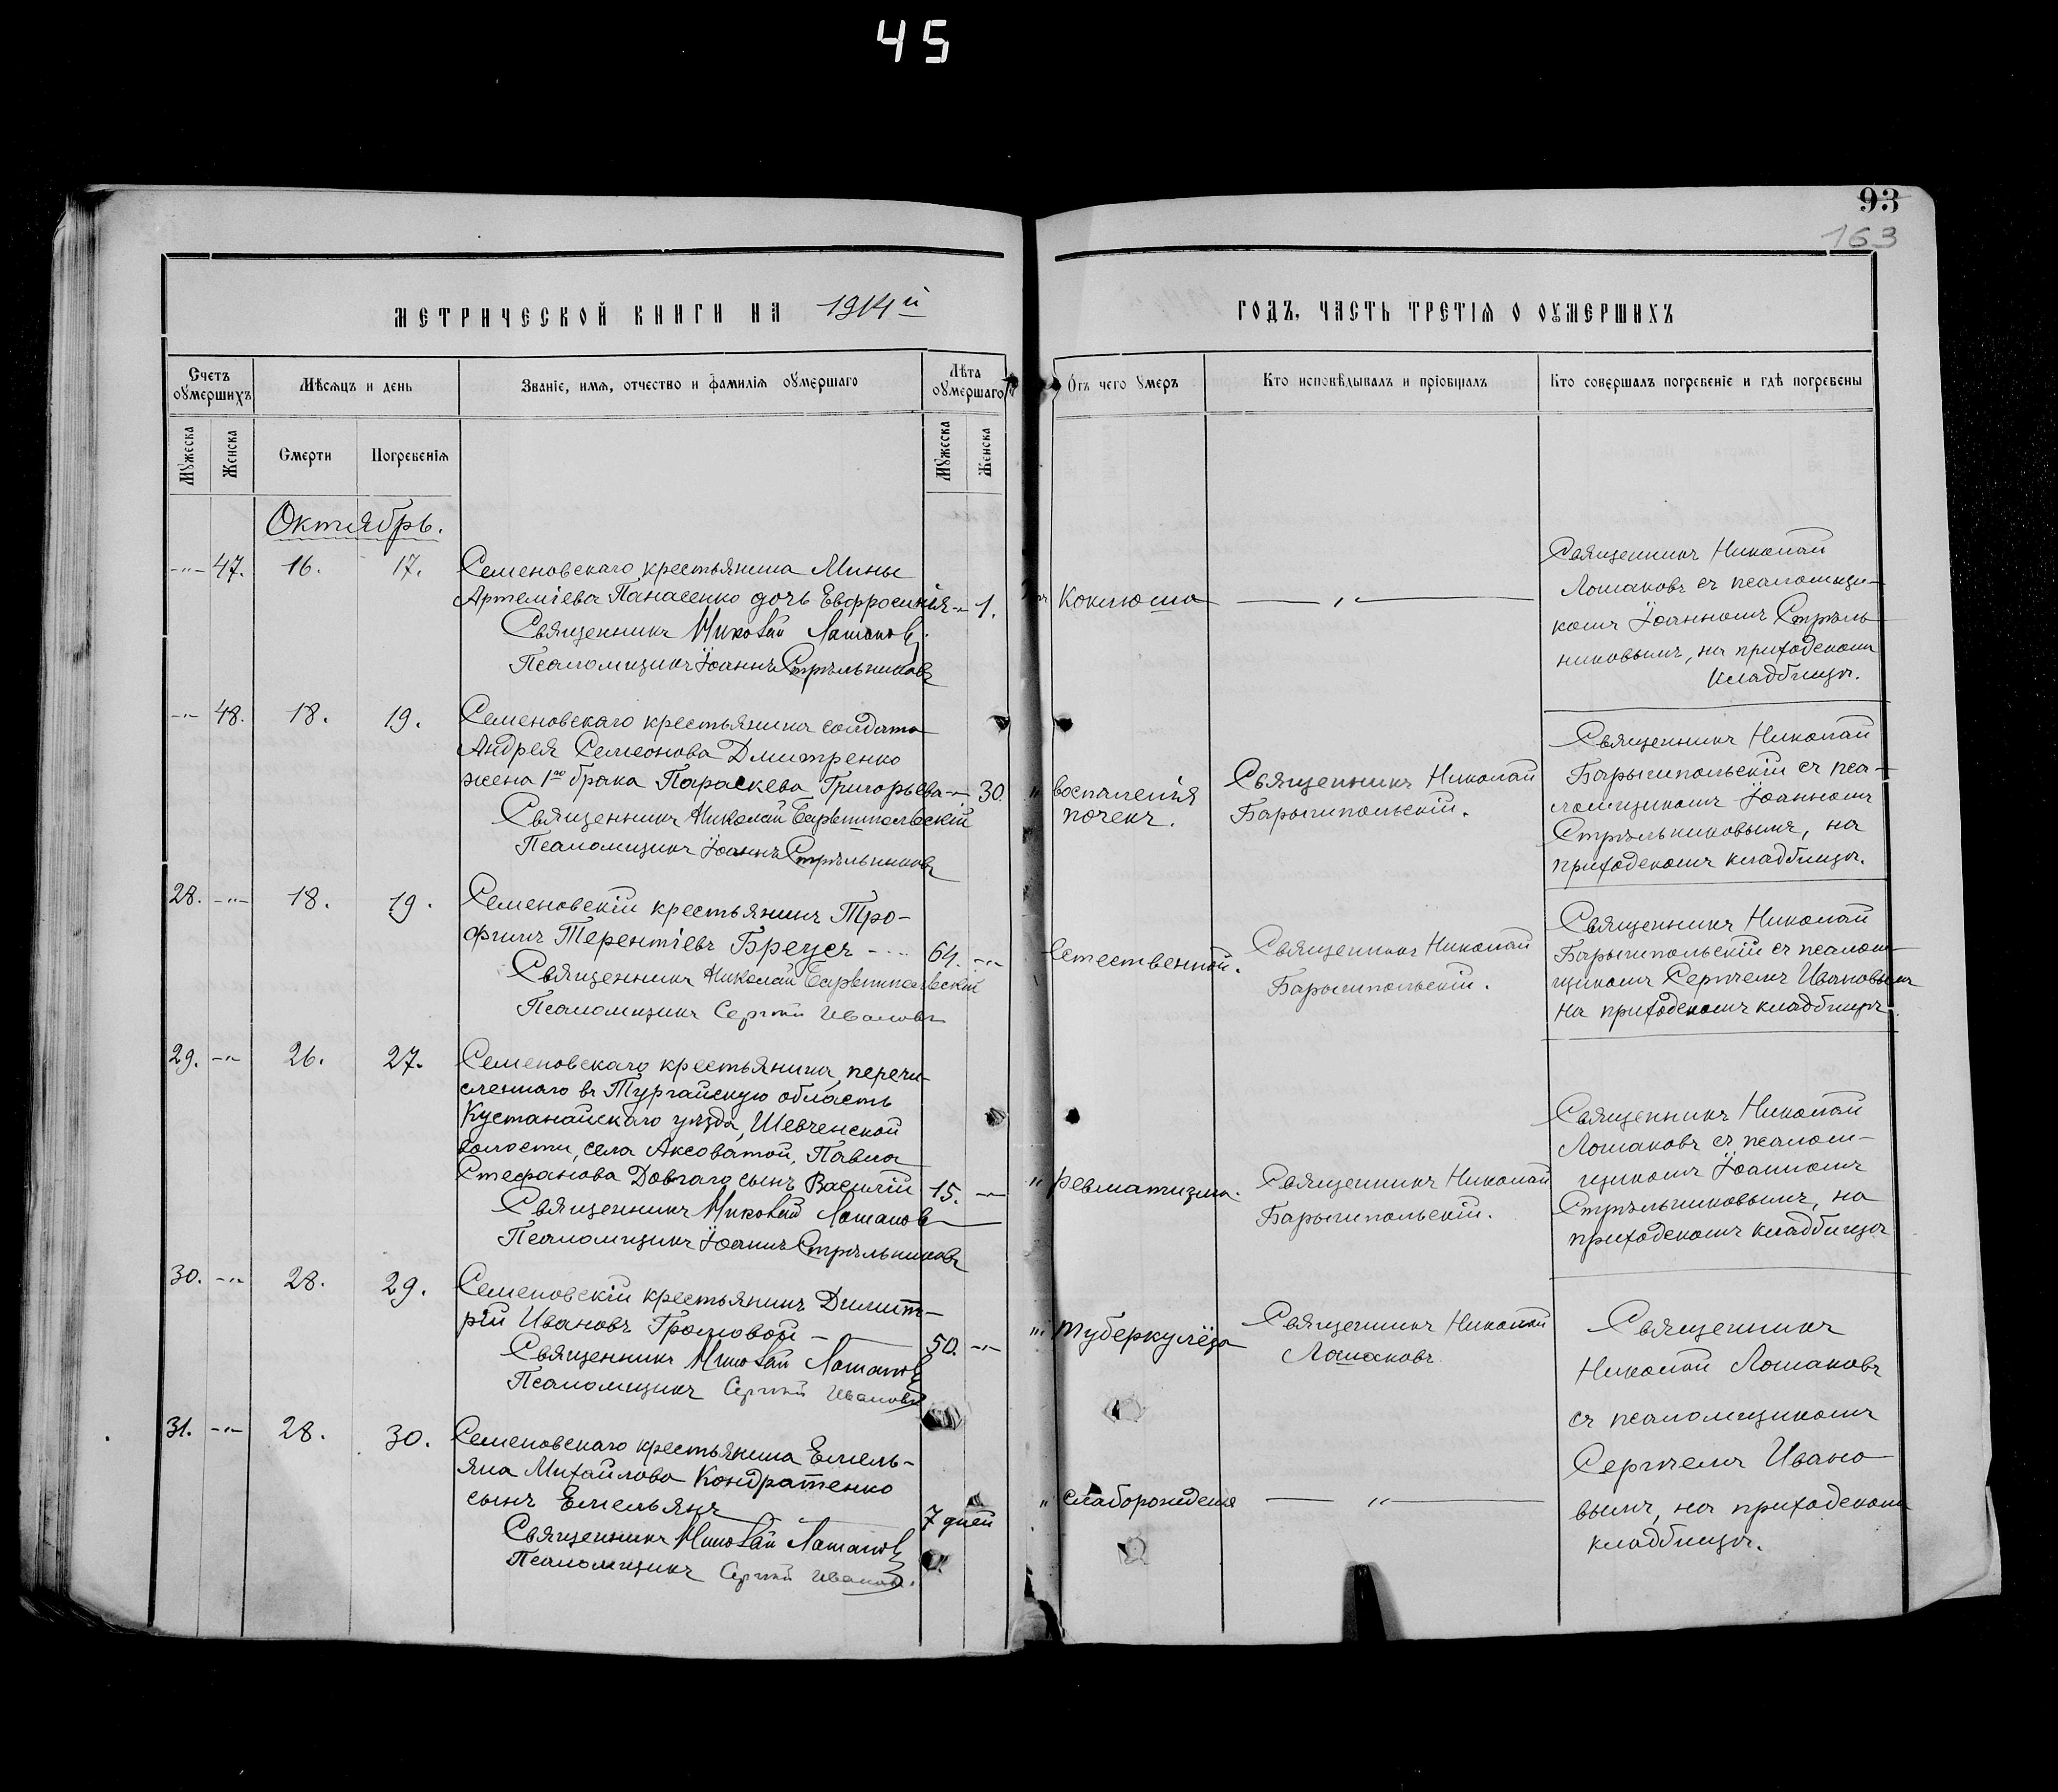 45
93
163
МЕТРИЧЕСКОЙ КНИГИ НА 1914й
ГОДЪ, ЧАСТЬ ТРЕТІѦ О ОУМЕРШИХЪ
Счетъ оумершихъ
Мѣсѧцъ и день
Званіе, имѧ, отчество и фамиліѧ оумершаго
Лѣта оумершаго
Отъ чего умеръ
Кто исповѣдывалъ и пріобщалъ
Кто совершалъ погребеніе и гдѣ погребены
Мужеска
Женска
Смерти
Погребеніѧ
Мужеска
Женска
Октябрь.
-"- 47. 16. 17.
Семеновскаго крестьянина Мины
Артеміева Панасенко дочь Евфросинія -"- 1.
Священникъ Николай Лошаковъ
Псаломщикъ Іоаннъ Стрѣльниковъ
Коклюша
— " —
Священникъ Николай
Лошаковъ съ псаломщи-
комъ Іоанномъ Стрѣль-
никовымъ, на приходскомъ
кладбищѣ.
-"- 48. 18. 19.
Семеновскаго крестьянина солдата
Андрея Семеонова Дмитренко
жена 1го брака Параскева Григорьева -"- 30.
Священникъ Николай Барышпольскій
Псаломщикъ Іоаннъ Стрѣльниковъ
" воспаленія
почекъ.
Священникъ Николай
Барышпольскій.
Священникъ Николай
Барышпольскій съ пса-
ломщикомъ Іоанномъ
Стрѣльниковымъ, на
приходскомъ кладбищѣ.
28. -"- 18. 19.
Семеновскій крестьянинъ Тро-
фимъ Терентіевъ Брецъ 64. -"-
Священникъ Николай Барышпольскій
Псаломщикъ Сергѣй Ивановъ
Естественной.
Священникъ Николай
Барышпольскій.
Священникъ Николай
Барышпольскій съ псалом-
щикомъ Сергѣемъ Ивановымъ
на приходскомъ кладбищѣ.
29. -"- 26. 27.
Семеновскаго крестьянина, перечи-
сленнаго въ Тургайскую область
Кустанайскаго уѣзда, Шевченской
волости, села Аксоватой, Павла
Стефанова Довгаго сынъ Василій 15. -"-
Священникъ Николай Лошаковъ
Псаломщикъ Іоаннъ Стрѣльниковъ
" ревматизма.
Священникъ Николай
Барышпольскій.
Священникъ Николай
Лошаковъ съ псалом-
щикомъ Іоанномъ
Стрѣльниковымъ, на
приходскомъ кладбищѣ
30. -"- 28. 29.
Семеновскій крестьянинъ Димит-
рій Ивановъ Громовой 50. -"-
Священникъ Николай Лошаковъ
Псаломщикъ Сергѣй Ивановъ
" туберкулёза
Священникъ Николай
Лошаковъ.
Священникъ
Николай Лошаковъ
съ псаломщикомъ
Сергѣемъ Ивано
вымъ, на приходскомъ
кладбищѣ.
31. -"- 28. 30.
Семеновскаго крестьянина Емель-
яна Михайлова Кондратенко
сынъ Емельянъ 7 дней
Священникъ Николай Лошаковъ
Псаломщикъ Сергѣй Ивановъ.
" слаборожденія
— " —